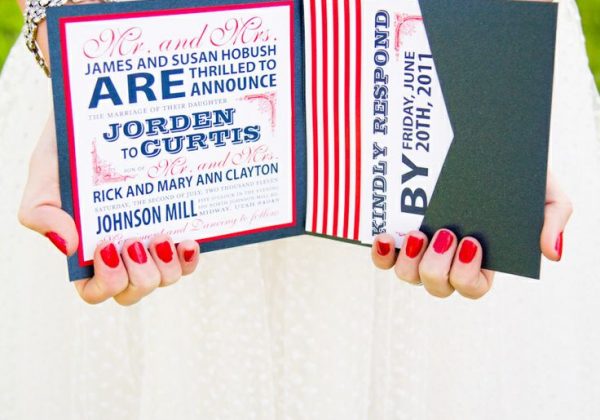 Mr. and Mrs.
JAMES AND SUSAN HOBUSH
ARE THRILLED TO
ANNOUNCE
THE MARRIAGE OF THEIR DAUGHTER
JORDEN
TO CURTIS
SON OF Mr. and Mrs.
RICK AND MARY ANN CLAYTON
SATURDAY, THE SECOND OF JULY, TWO THOUSAND ELEVEN
JOHNSON MILL
FIVE O'CLOCK IN THE EVENING
MIDWAY, UTAH
Dancing to follow
KINDLY RESPOND
BY FRIDAY, JUNE
20TH, 2011